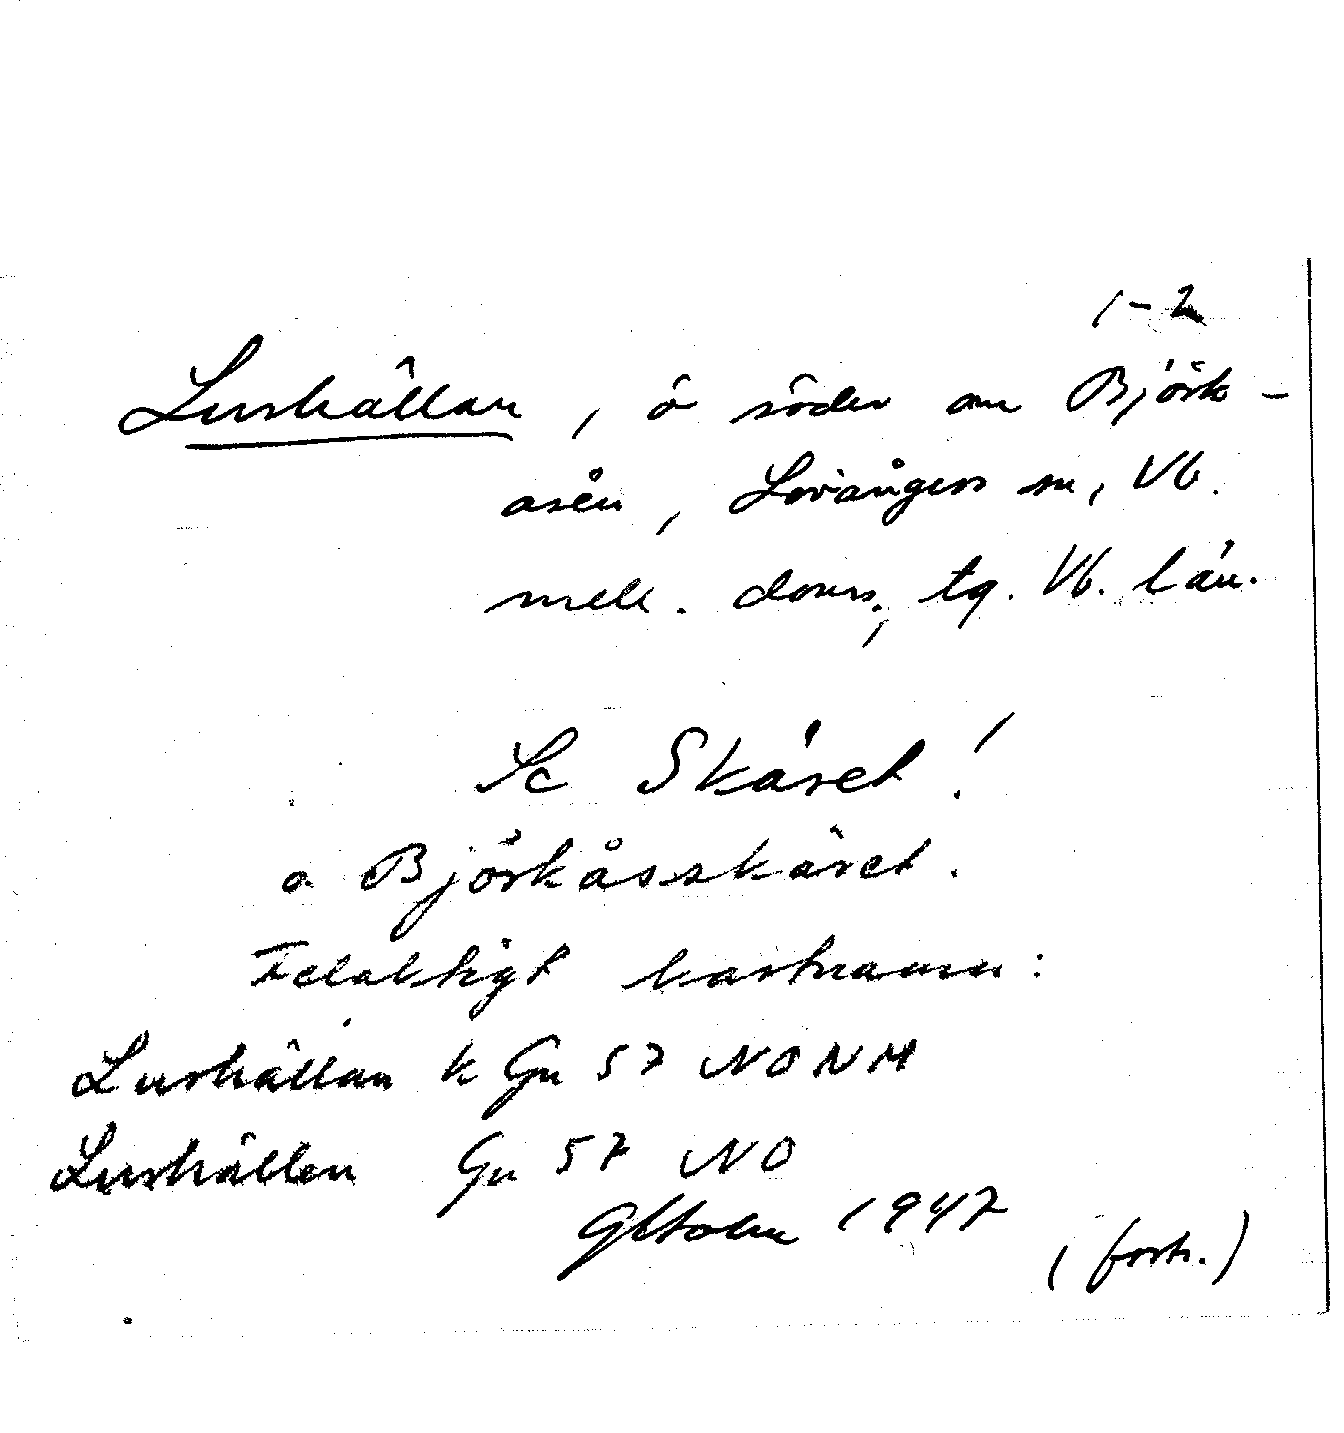 1-2
Lushällan, ö söder om Björk-
åsen, Lövångers sn, Vb.
mell. doms, tg. Vb. län.
Se Skäret!
o Björkåsskäret.
Felaktigt kartnamn:
Lushällan k Gn 57 NONM
Lushällen Gn 57 NO
GHolm 1947
(forts.)